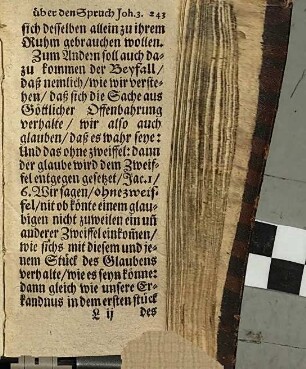 über den Spruch Joh. 3. 243
sich desselben allein zu ihrem
Ruhm gebrauchen wollen.
Zum Andern soll auch da-
zu kommen der Beyfall/
daß nemlich/ wie wir verste-
hen/ daß sich die Sache aus
Göttlicher Offenbahrung
verhalte/ wir also auch
glauben/ daß es wahr seye:
Und das ohne zweiffel: dann
der glaube wird dem Zweif-
fel entgegen gesetzet/ Jac. 1/
6. Wir sagen/ ohne zweif-
fel/ nit ob könte einem glau-
bigen nicht zuweilen ein uñ
anderer Zweiffel einkom̃en/
wie sichs mit diesem und je-
nem Stück des Glaubens
verhalte/ wie es seyn könne:
dann gleich wie unsere Er-
kandnus in dem ersten stück
L ij des